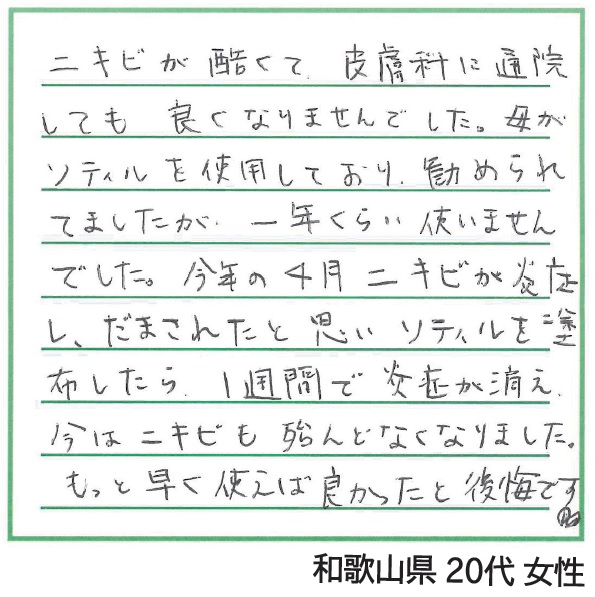 ニキビが酷くて、皮膚科に通院
しても良くなりませんでした。母が
ソティルを使用しており、勧められ
てましたが、一年くらい使いません
でした。今年の4月ニキビが炎症
し、だまされたと思いソティルを塗
布したら、1週間で炎症が消え、
今はニキビも殆んどなくなりました。
もっと早く使えば良かったと後悔です
和歌山県 20代 女性